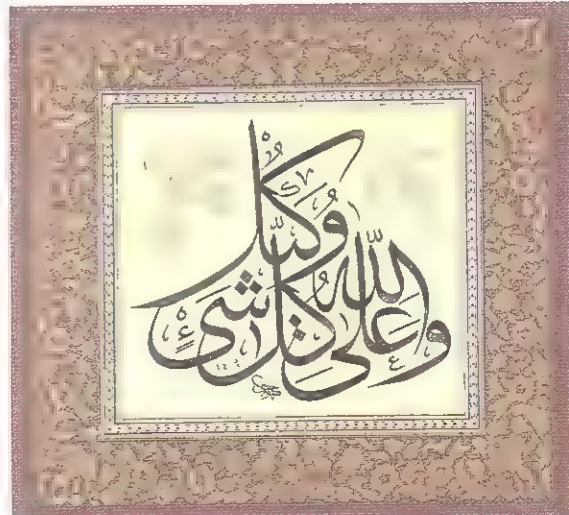 والله على كل شىء وكيل